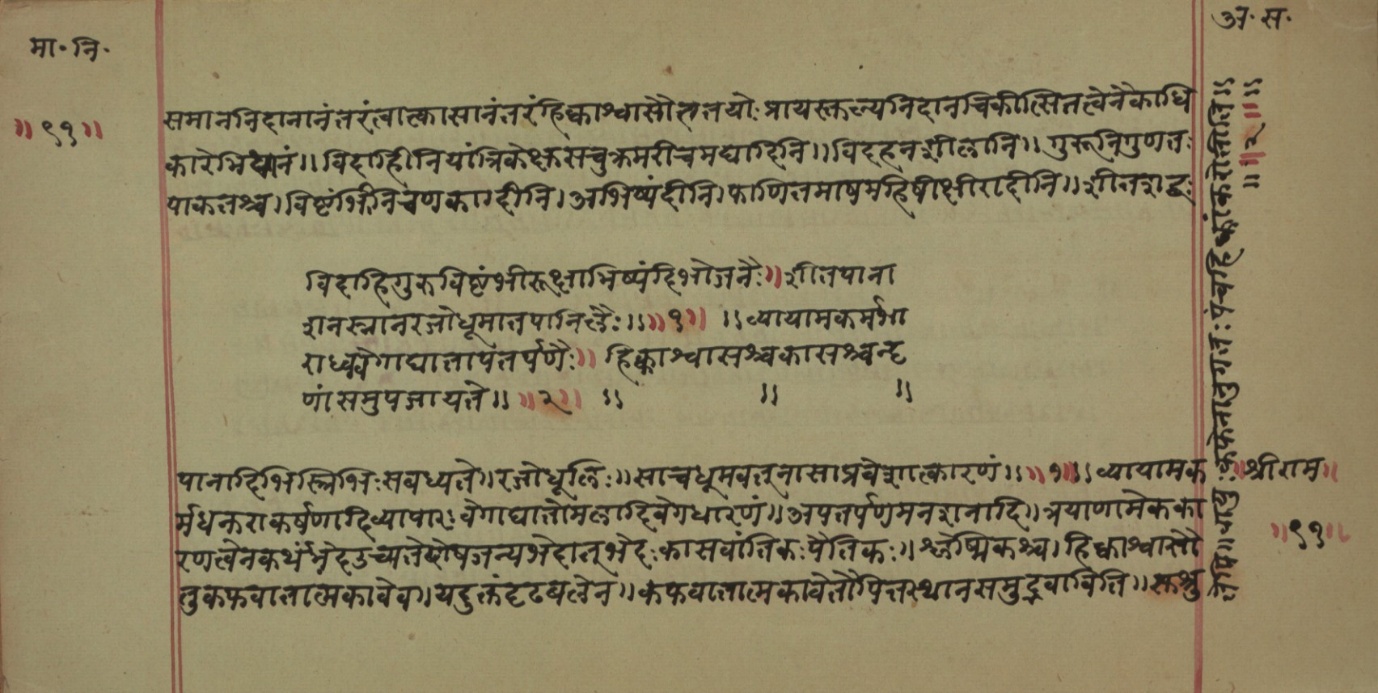 मा॰ नि॰
अ॰ स॰
॥ ९१ ॥
समाननिदानानंतरंत्वात्कासानंतरंहिक्काश्वासौतत्रतयोः प्रायस्तुल्यनिदानचिकीत्सितत्वेनैकाधि
कारेभिधानं॥ विदाहीनियान्निकेक्षुरसचुक्रमरीचमद्यादिनि॥ विदहनशीलानि॥ गुरूनिगुणतः
पाकतश्च। विष्टंभीनिचणकादीनि। अभिष्यंदीनि। फाणितमाषमहिषीक्षीरादीनि॥ शीतशब्दः
विदाहिगुरुविष्टंभीरूक्षाभिष्यंदिभोजनैः॥ शीतपाना
शनस्नानरजोधूमातपानिलैः॥॥ १॥ ॥व्यायामकर्मभा
राध्ववेगाघातापतर्पणैः॥ हिक्काश्वासश्चकासश्चनृ
णांसमुपजायते॥ ॥२॥ ॥ ॥ ॥
पानादिभिस्त्रिभिः संबध्यते॥ रजोधूलिः॥ साचधूमवत्नासाप्रवेशात्कारणं॥ ॥१॥॥ व्यायामक
र्मधनुराकर्षणादिव्यापारः वेगाघातोमलादिवेगधारणं॥ अपतर्पणमनशनादि॥ त्रयाणामेकका
रणत्वेनकथंभेदउच्यतेदोषजन्यभेदात्भेदः कासवांतिकः पैतिकः॥ श्लेष्मिकश्च। हिक्काश्वासौ
तुकफवातात्मकावेव॥ यदुक्तंदृढबलेन॥ कफवातात्मकावेतौपित्तस्थानसमुद्भवाविति॥ सुश्रु
तेपि॥ वायुः कफेनानुगतः पंचहिक्कांकरोतीति॥ ॥२॥॥
॥श्रीराम॥
॥९१॥